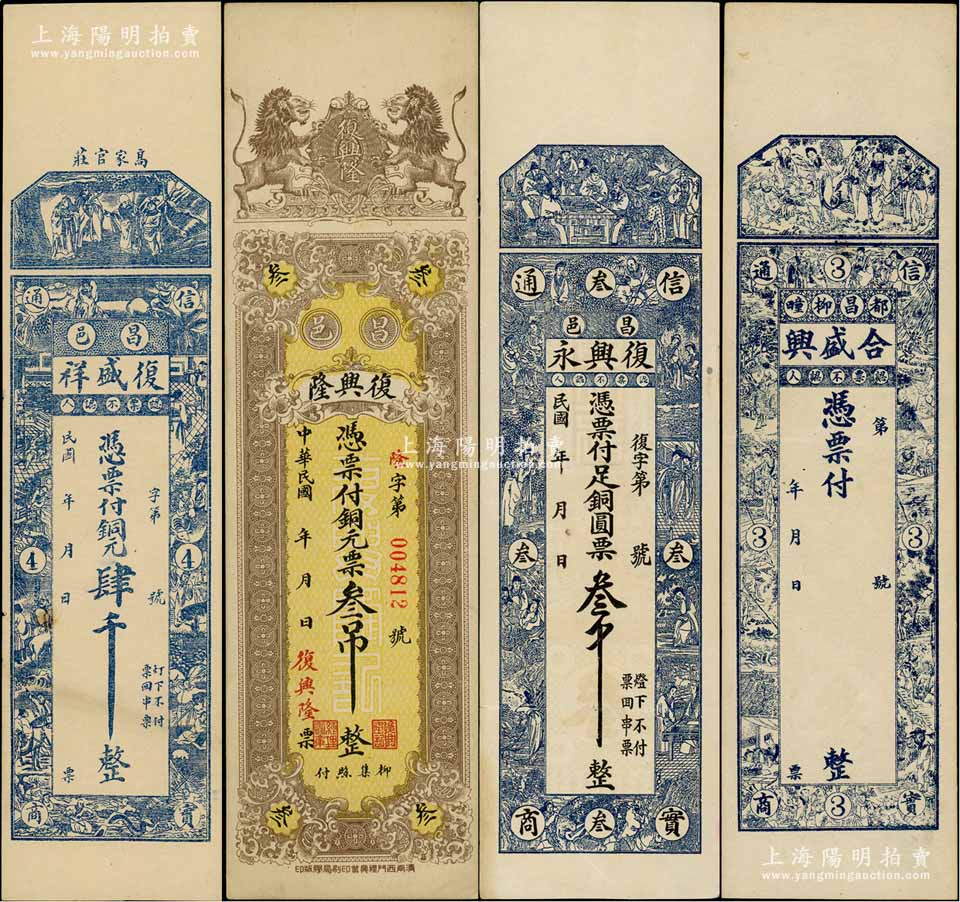 上海陽明拍賣
www.yangmingauction.com
高家官莊
信
通
昌邑
復盛祥
認票不認人
字第 號
憑票付銅元肆千整
民國 年 月 日
4
4
灯下不付
票回串票
票
實
商
復興隆
叁
叁
昌
邑
復興隆
隆字第 004812 號
憑票付銅元票叁吊整
中華民國 年 月 日
復興隆票
柳集絲付
叁
叁
信
叁
通
昌邑
復興永
認票不認人
復字第 號
憑票付足銅圓票叁千整
民國 年 月 日
叁
叁
燈下不付
票回串票
實
叁
商
信
3
通
都昌柳疃
合盛興
認票不認人
第 號
憑票付 整
年 月 日
3
3
票
實
3
商
上海陽明拍賣
www.yangmingauction.com
上海陽明拍賣
www.yangmingauction.com